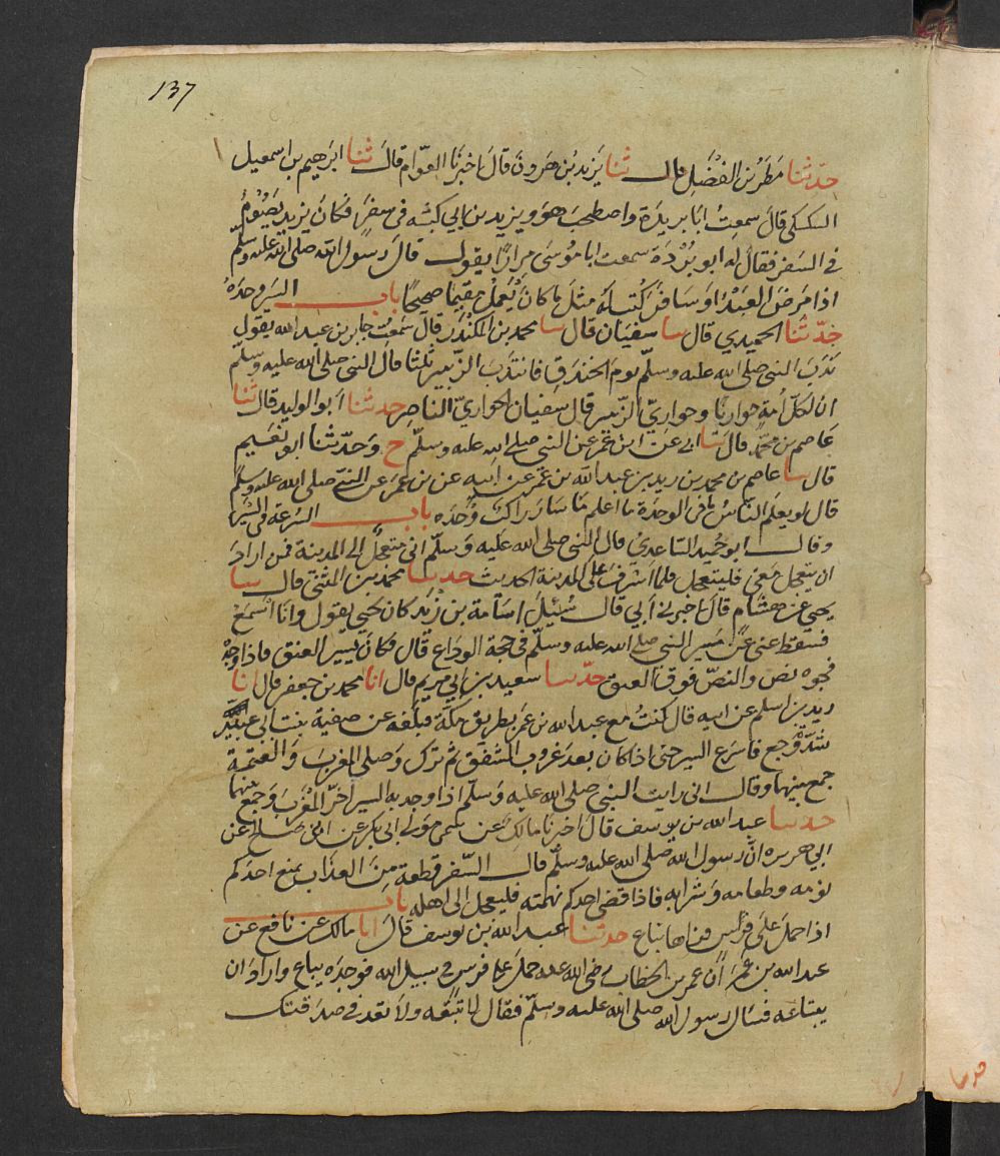 137
حدثنا مطر بن الفضل قال ثنا يزيد بن هرون قال اخبرنا العوام قال ثنا ابرهيم بن اسمعيل
السكسكي قال سمعت ابا بريدة واصطحب هو ويزيد بن ابي كبشه في سفر فكان يزيد يصوم
في السفر فقال له ابو بردة سمعت ابا موسى مرارا يقول قال رسول الله صلى الله عليه وسلم
اذا مرض العبد او سافر كتب له مثل ما كان يعمل مقيما صحيحا باب السير وحده
حدثنا الحميدي قال سا سفيان قال سا محمد بن المنكدر قال سمعت جابر بن عبد الله يقول
ندب النبي صلى الله عليه وسلم يوم الخندق فانتدب الزبير ثلثا قال النبي صلى الله عليه وسلم
ان لكل امة حواريا وحواريّ الزبير قال سفيان الحواريّ الناصر حدثنا ابو الوليد قال ثنا
عاصم بن محمد قال ثنا ابي عن ابن عمر عن النبي صلى الله عليه وسلم ح وحدثنا ابو نعيم
قال سا عاصم بن محمد بن زيد بن عبد الله بن عمر عن ابيه عن بن عمر عن النبي صلى الله عليه وسلم
قال لو يعلم الناس ما في الوحدة ما اعلم ما سار راكب وحده باب السرعة في السير
وقال ابو حميد الساعدي قال النبي صلى الله عليه وسلم اني متعجل الى المدينة فمن اراد
ان يتعجل معي فليتعجل فلما اشرف على المدينة الحديث حدثنا محمد بن المثنى قال سا
يحيى عن هشام قال اخبرني ابي قال سئيل اسامة بن زيد كان يحيى يقول وانا اسمع
فسقط عني عن مسير النبي صلى الله عليه وسلم في حجة الوداع قال فكان يسير العنق فاذا وجد
فجوه نص والنصّ فوق العنق حدثنا سعيد بن ابي مريم قال انا محمد بن جعفر قال انا
زيد بن اسلم عن ابيه قال كنت مع عبد الله بن عمر بطريق مكة فبلغه عن صفية بنت ابي عبيد
شدة وجع فاسرع السير حتى اذا كان بعد غروب الشفق ثم نزل وصلى المغرب والعتمة
جمع بينهما وقال اني رايت النبي صلى الله عليه وسلم اذا وجد به السير اخر المغرب وجمع بينهما
حدثنا عبد الله بن يوسف قال اخبرنا مالك عن سمى مولى ابي بكر عن ابي صالح عن
ابي هريره ان رسول الله صلى الله عليه وسلم قال السفر قطعة من العذاب يمنع احدكم
نومه وطعامه وشرابه فاذا قضى احدكم نهمته فليعجل الى اهله باب
اذا حمل على فرس فراها تباع حدثنا عبد الله بن يوسف قال انا مالك عن نافع عن
عبد الله بن عمر ان عمر بن الخطاب رضي الله عنه حمل على فرس في سبيل الله فوجده يباع واراد ان
يبتاعه فسال رسول الله صلى الله عليه وسلم فقال لا تبتعه ولا تعد في صدقتك